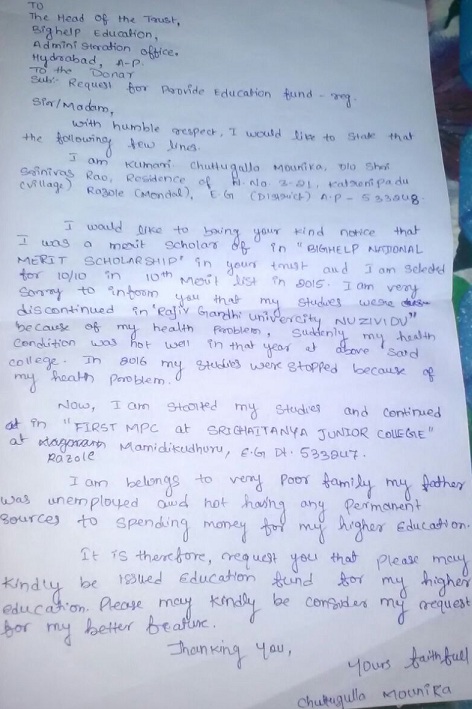 TO
The Head of the Trust,
Bighelp Education,
Administeration office,
Hydrabad, A-P.
To the Donar
Sub:- Request for Provide Education fund - reg.
Sir/Madam,
With humble respect, I would like to state that
the following few lines.
I am Kumari Chuttugulla Mounika, D/o Shri
Srinivas Rao, Residence of H.No. 3-21, Katrenipadu
(village) Razole (Mandal), E.G (District) A.P - 533248.
I would like to bring your kind notice that
I was a merit Scholar of in "BIGHELP NATIONAL
MERIT SCHOLARSHIP" in your trust and I am selected
for 10/10 in 10th Merit list in 2015. I am very
sorry to inform you that my studies were
discontinued in "Rajiv Gandhi univercity NUZIVIDU"
because of my health Problem, Suddenly my health
Condition was not well in that year at above said
college. In 2016 my studies were stopped because of
my health Problem.
Now, I am started my studies and continued
at in "FIRST MPC at SRICHAITANYA JUNIOR COLLEGE"
at Mamidikudhuru, E.G Dt. 533247.
Razole
I am belongs to very Poor family my father
was unemployed and not having any Permanent
sources to spending money for my higher Education.
It is therefore, request you that Please may
kindly be issued Education fund for my higher
education. Please may kindly be consider my request
for my better feature.
Thanking you,
Yours faithfull
Chuttugulla Mounika